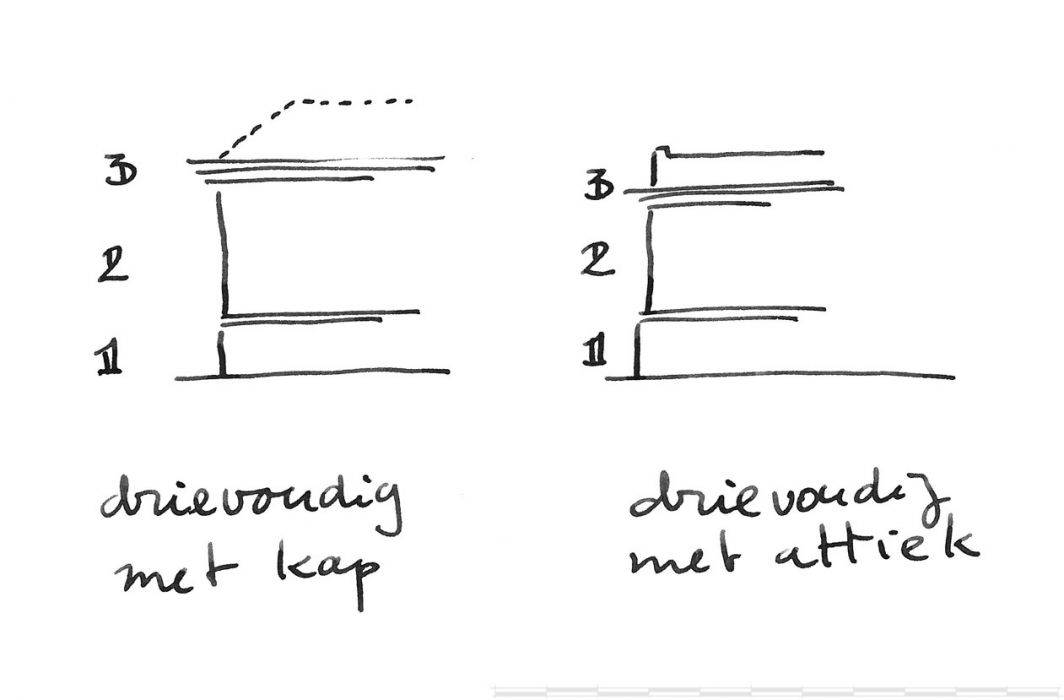 3 3
2 2
1 1
drievoudig drievoudig
met kap met attiek